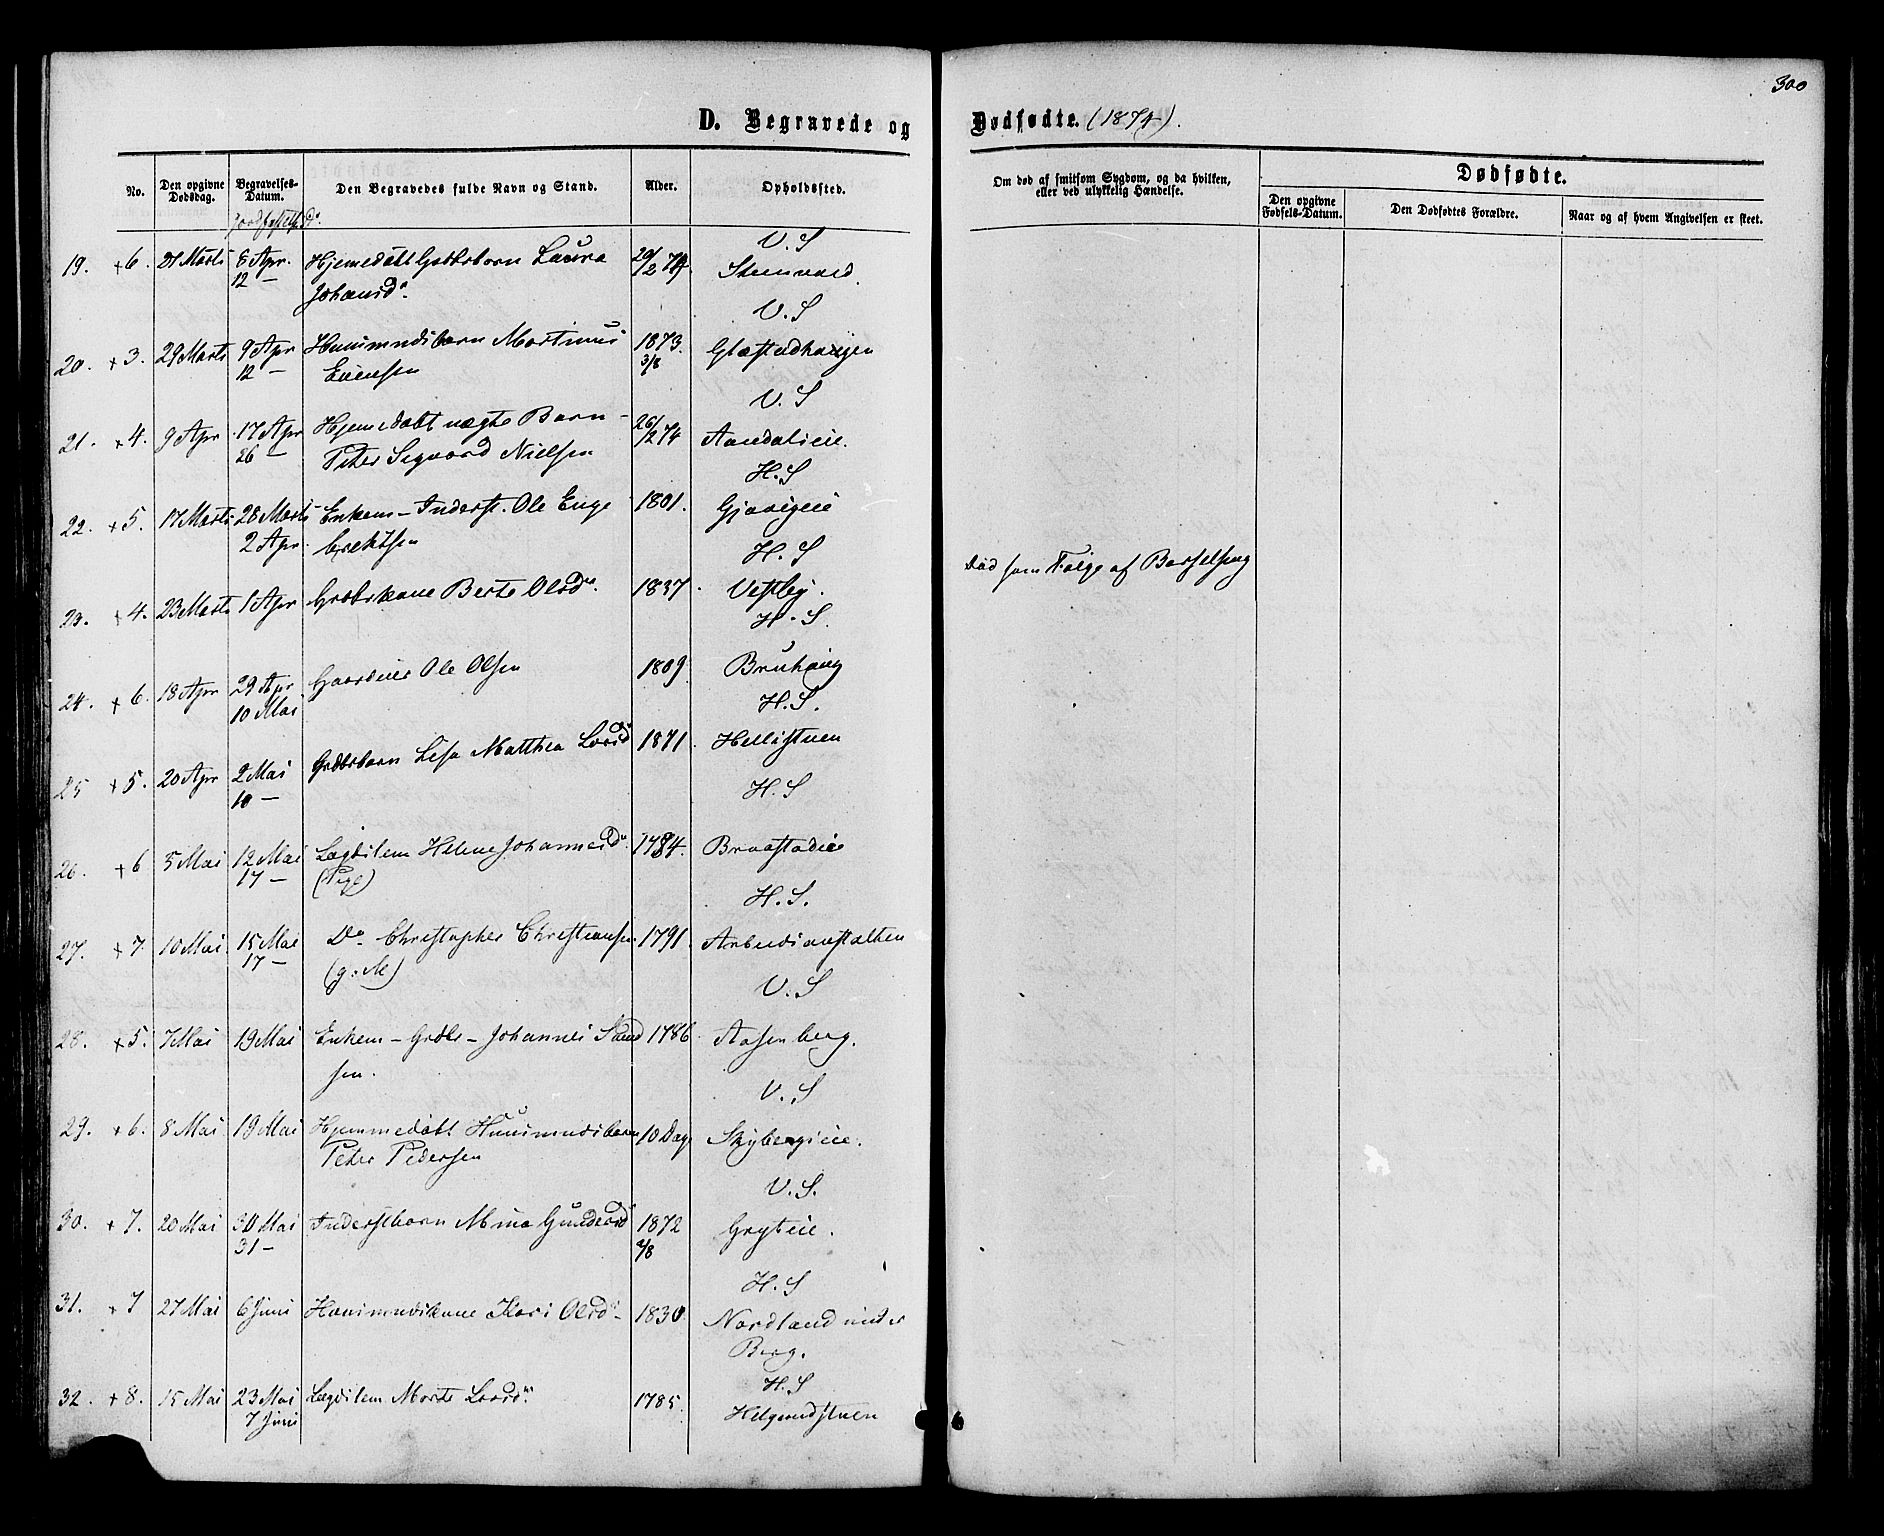 300
D. Begravede og Dødfødte. (1874).
No.
Den opgivne Dødsdag.
Begravelses-Datum.
Den Begravedes fulde Navn og Stand.
Alder.
Opholdssted.
Om død af smitsom Sygdom, og da hvilken, eller ved ulykkelig Hændelse.
Dødfødte.
Den opgivne Fødsels-Datum.
Den Dødfødtes Forældre.
Naar og af hvem Angivelsen er skeet.
V. S
19. + 6. 27 Marts 8 Apr. Hjemedøbt Gbrbarn Laura 74. Steinvold
12 — Johansd.
V. S
20. + 3. 29 Marts 9 Apr Huusmndsbarn Martinus 1873. Glæstadhaugen
12 — Evensen 3/8
V. S
21. + 4. 9 Apr 17 Apr Hjemedøbt uægte Barn — 26/2 74 Aandalseie.
26 — Peter Sigvard Nielsen
H. S
22. + 5. 17 Marts 28 Marts Enkem — Inderst. Ole Enge 1801. Gjøvigeie
2 Apr. brektsen
H. S
23. + 4. 23 Marts 1 Apr Gbrkone Berte Olsd. 1837. Vestby. Død som Følge af Barselseng
H. S.
24. + 6. 18 Apr 29 Apr Gaardeier Ole Olsen 1809. Bruhaug
10 Mai
H. S.
25 + 5. 20 Apr 2 Mai Gbrbarn Lisa Matthea Larsd 1871. Hellistuen
10 —
H. S
26. + 6 5 Mai 12 Mai Lægdslem Helene Johannesd. 1784. Braastadeie
17 — (Pige)
H. S.
27. + 7 10 Mai. 15 Mai Do. Christopher Christiansen. 1791. Arbeidsanstalten
17 — (g. M)
V. S
28. + 5. 7 Mai 19 Mai Enkem — Gbr — Johannes 1786. Aasenberg.
sen.
V. S
29. + 6. 8 Mai 19 Mai Hjemmedøbt Huusmndsbarn 10 Dage Skybergseie.
Peter Pedersen
V. S.
30. + 7. 20 Mai 30 Mai Inderstbarn Mina 1872 Gryteie.
31 —
H. S
31. + 7 27 Mai 6 Juni Huusmndskone Kari Olsd. 1830 Nordland under
Berg.
H. S
32. + 8. 15 Mai 23 Mai Lægdslem Marte Larsd. 1785. Helgerudstuen
7 Juni